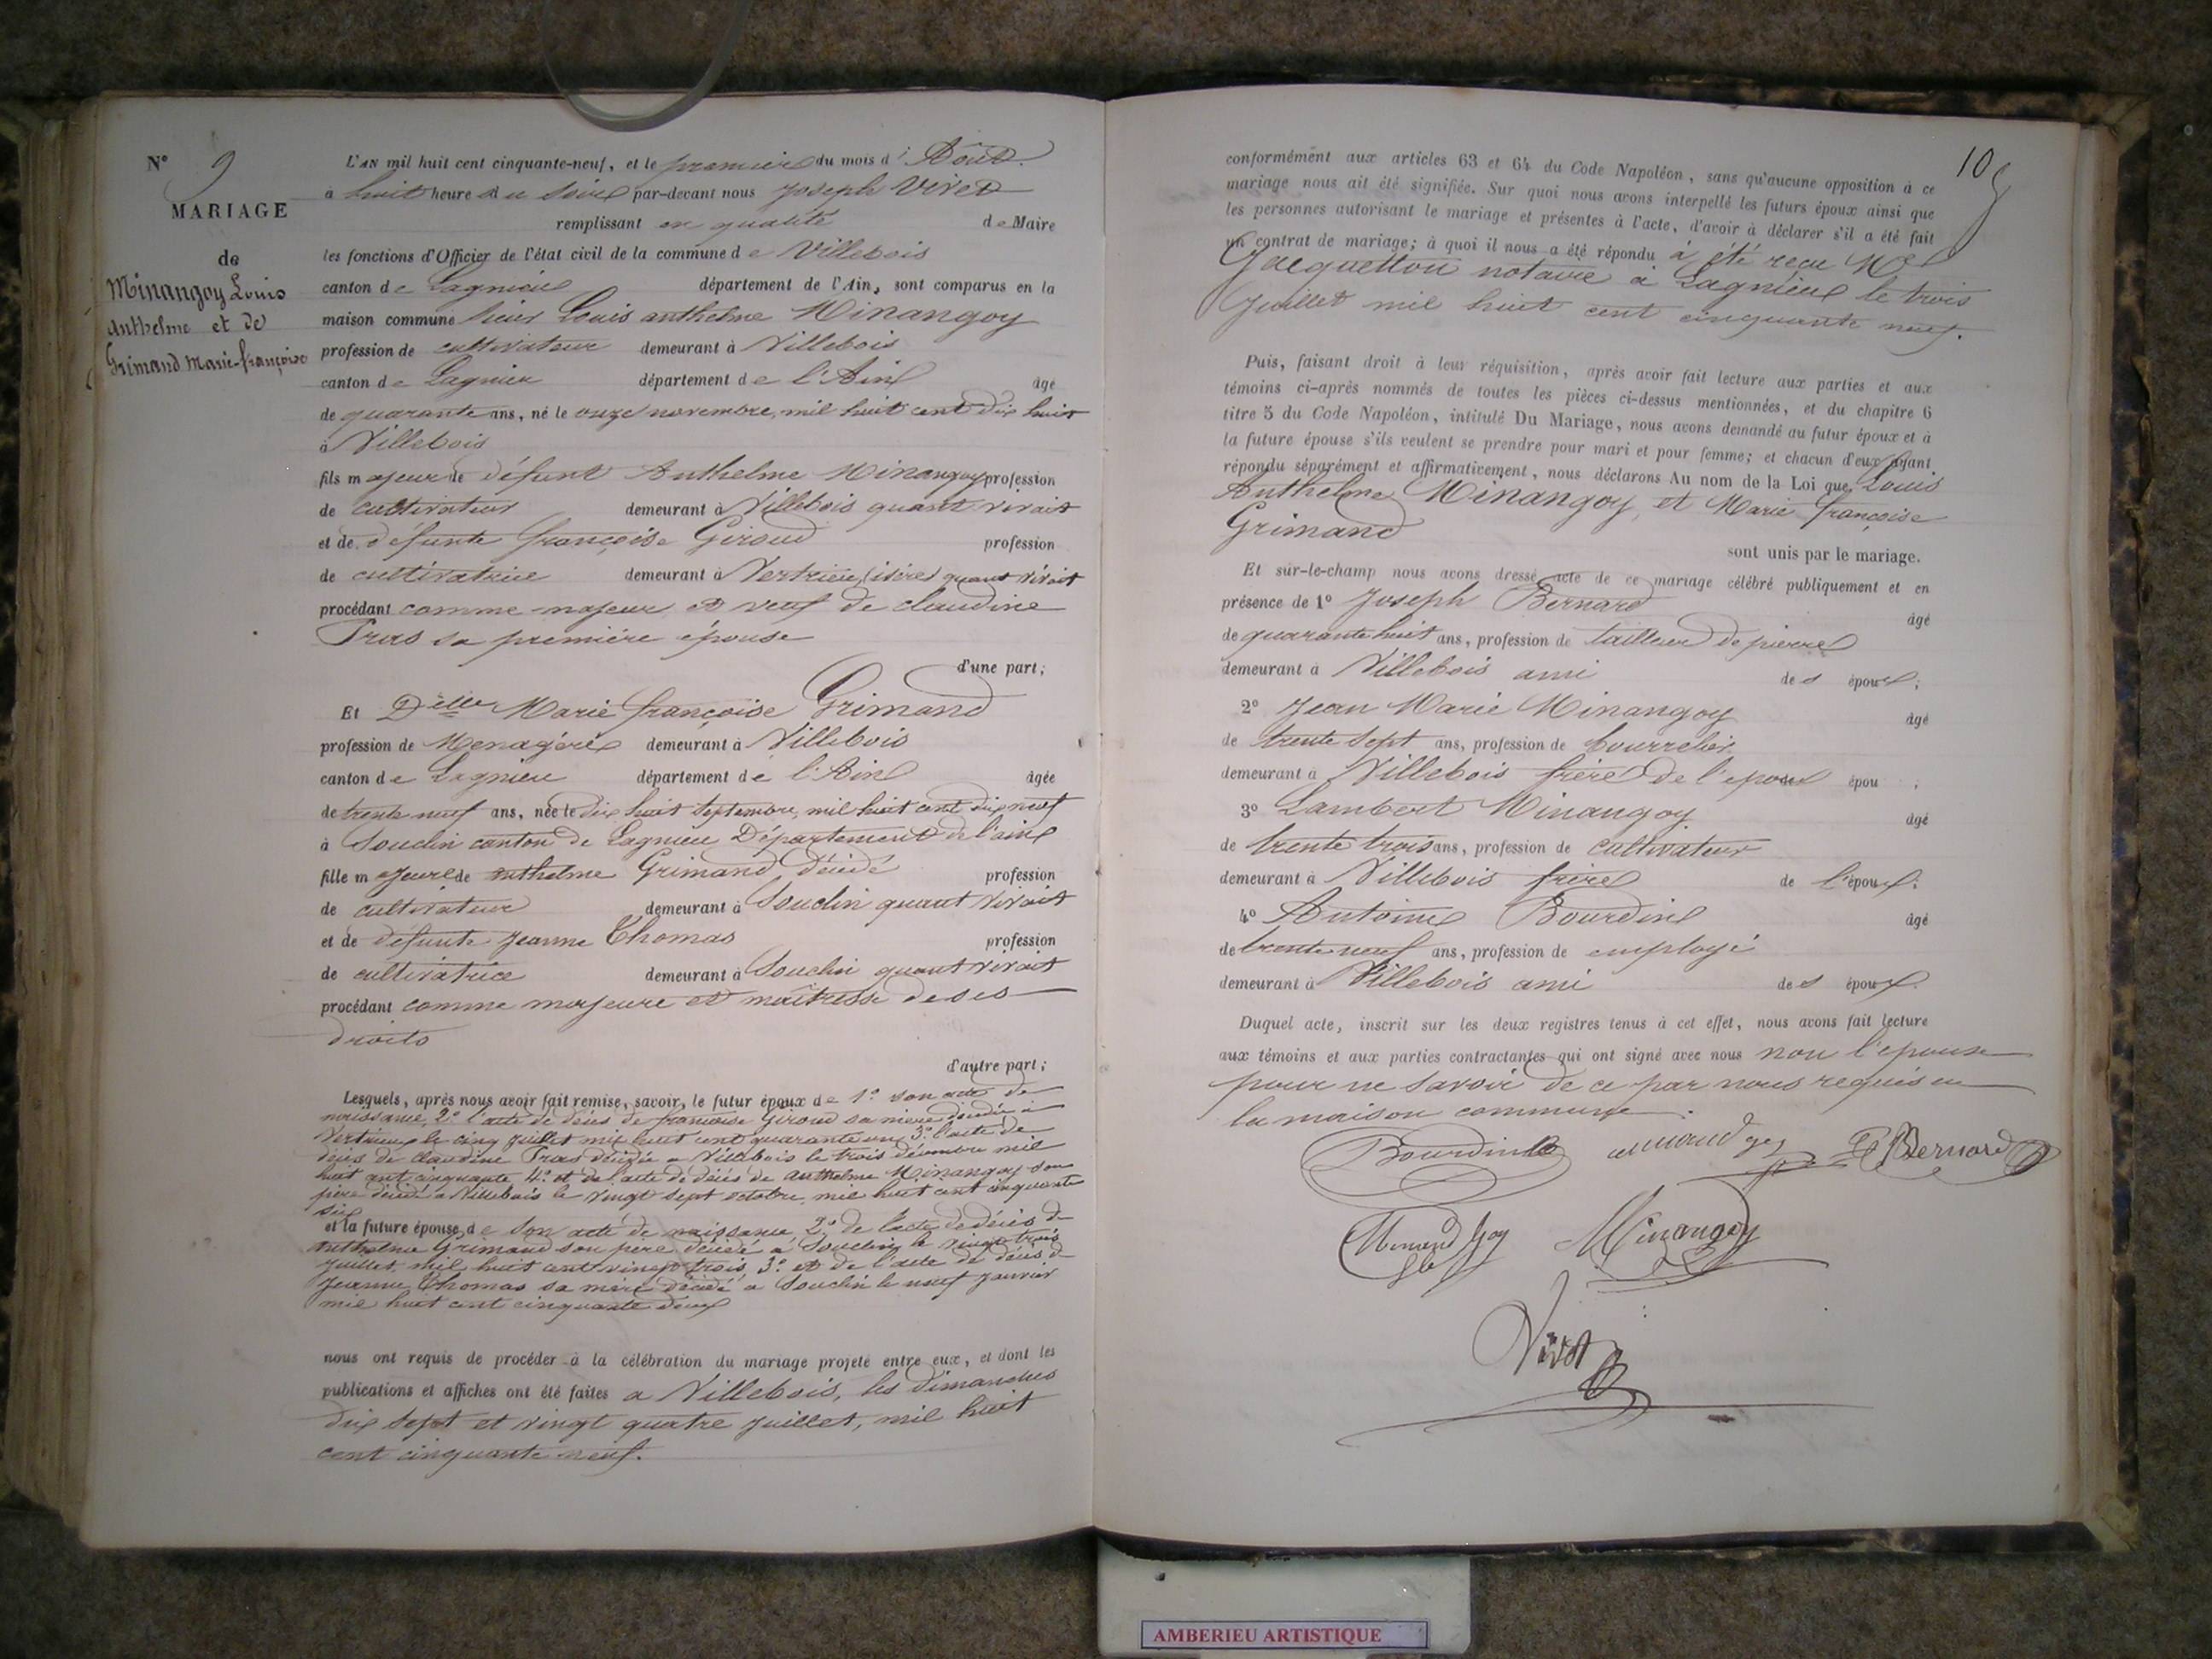 N° 9
MARIAGE
de
Minangoy Louis
Anthelme et de
Grimand Marie-françoise
L'AN mil huit cent cinquante-neuf, et le premier du mois d' Août
à huit heure du Soir par-devant nous Joseph Vivet
remplissant en qualité de Maire
les fonctions d'Officier de l'état civil de la commune de Villebois
canton de Lagnieu département de l'Ain, sont comparus en la
maison commune Sieur Louis anthelme Minangoy
profession de cultivateur demeurant à Villebois
canton de Lagnieu département de l'Ain âgé
de quarante ans, né le onze novembre, mil huit cent dix huit
à Villebois
fils majeur de défunt Anthelme Minangoy profession
de cultivateur demeurant à Villebois quant vivait
et de défunte françoise Giroud profession
de cultivatrice demeurant à Vertrieu (isère) quant vivait
procédant comme majeur et veuf de claudine
Tras sa première épouse
d'une part;
Et Delle Marie françoise Grimand
profession de Menagère demeurant à Villebois
canton de Lagnieu département de l'Ain âgée
de trente neuf ans, née le dix huit Septembre, mil huit cent dix neuf
à Souclin canton de Lagnieu Département de l'ain
fille majeure de anthelme Grimand, décédé profession
de cultivateur demeurant à Souclin quant vivait
et de défunte Jeanne Thomas profession
de cultivatrice demeurant à Souclin quant vivait
procédant comme majeure et maîtresse de ses
droits
d'autre part;
Lesquels, après nous avoir fait remise, savoir, le futur époux de 1° son acte de
naissance, 2° l'acte de décès de françoise Giroud sa mère décédée à
Vertrieu le cinq juillet mil huit cent quarante un, 3° l'acte de
décès de claudine Tras décédée a Villebois le trois décembre mil
huit cent cinquante 4° et de l'acte de décès de Anthelme Minangoy son
père décédé a Villebois le vingt sept octobre, mil huit cent cinquante
six
et la future épouse, de son acte de naissance, 2° de l'acte de décès de
anthelme Grimand son père décédé a Souclin le vingt trois
juillet, mil huit cent vingt trois, 3° et de l'acte de décès de
Jeanne Thomas sa mère décédé a Souclin le neuf janvier
mil huit cent cinquante deux
nous ont requis de procéder à la célébration du mariage projeté entre eux, et dont les
publications et affiches ont été faites a Villebois, les dimanches
dix sept et vingt quatre juillet, mil huit
cent cinquante neuf.
conformément aux articles 63 et 64 du Code Napoléon, sans qu'aucune opposition à ce
mariage nous ait été signifiée. Sur quoi nous avons interpellé les futurs époux ainsi que
les personnes autorisant le mariage et présentes à l'acte, d'avoir à déclarer s'il a été fait
un contrat de mariage; à quoi il nous a été répondu à été recu Me
Jacquetton notaire à Lagnieu le trois
Juillet mil huit cent cinquante neuf.
Puis, faisant droit à leur réquisition, après avoir fait lecture aux parties et aux
témoins ci-après nommés de toutes les pièces ci-dessus mentionnées, et du chapitre 6
titre 5 du Code Napoléon, intitulé Du Mariage, nous avons demandé au futur époux et à
la future épouse s'ils veulent se prendre pour mari et pour femme; et chacun d'eux ayant
répondu séparément et affirmativement, nous déclarons Au nom de la Loi que Louis
Anthelme Minangoy, et Marie françoise
Grimand
sont unis par le mariage.
Et sur-le-champ nous avons dressé acte de ce mariage célébré publiquement et en
présence de 1° Joseph Bernard âgé
de quarante huit ans, profession de tailleur de pierre
demeurant à Villebois ami des époux;
2° Jean Marie Minangoy âgé
de trente Sept ans, profession de bourrelier
demeurant à Villebois frère de l'epoux épou ;
3° Lambert Minangoy âgé
de trente trois ans, profession de cultivateur
demeurant à Villebois frère de l'époux;
4° Antoine Bourdin âgé
de trente neuf ans, profession de employé
demeurant à Villebois ami des époux
Duquel acte, inscrit sur les deux registres tenus à cet effet, nous avons fait lecture
aux témoins et aux parties contractantes qui ont signé avec nous non l'epouse
pour ne savoir de ce par nous requis en
la maison commune.
Bourdin Bernard
Minangoy
Vivet
AMBERIEU ARTISTIQUE